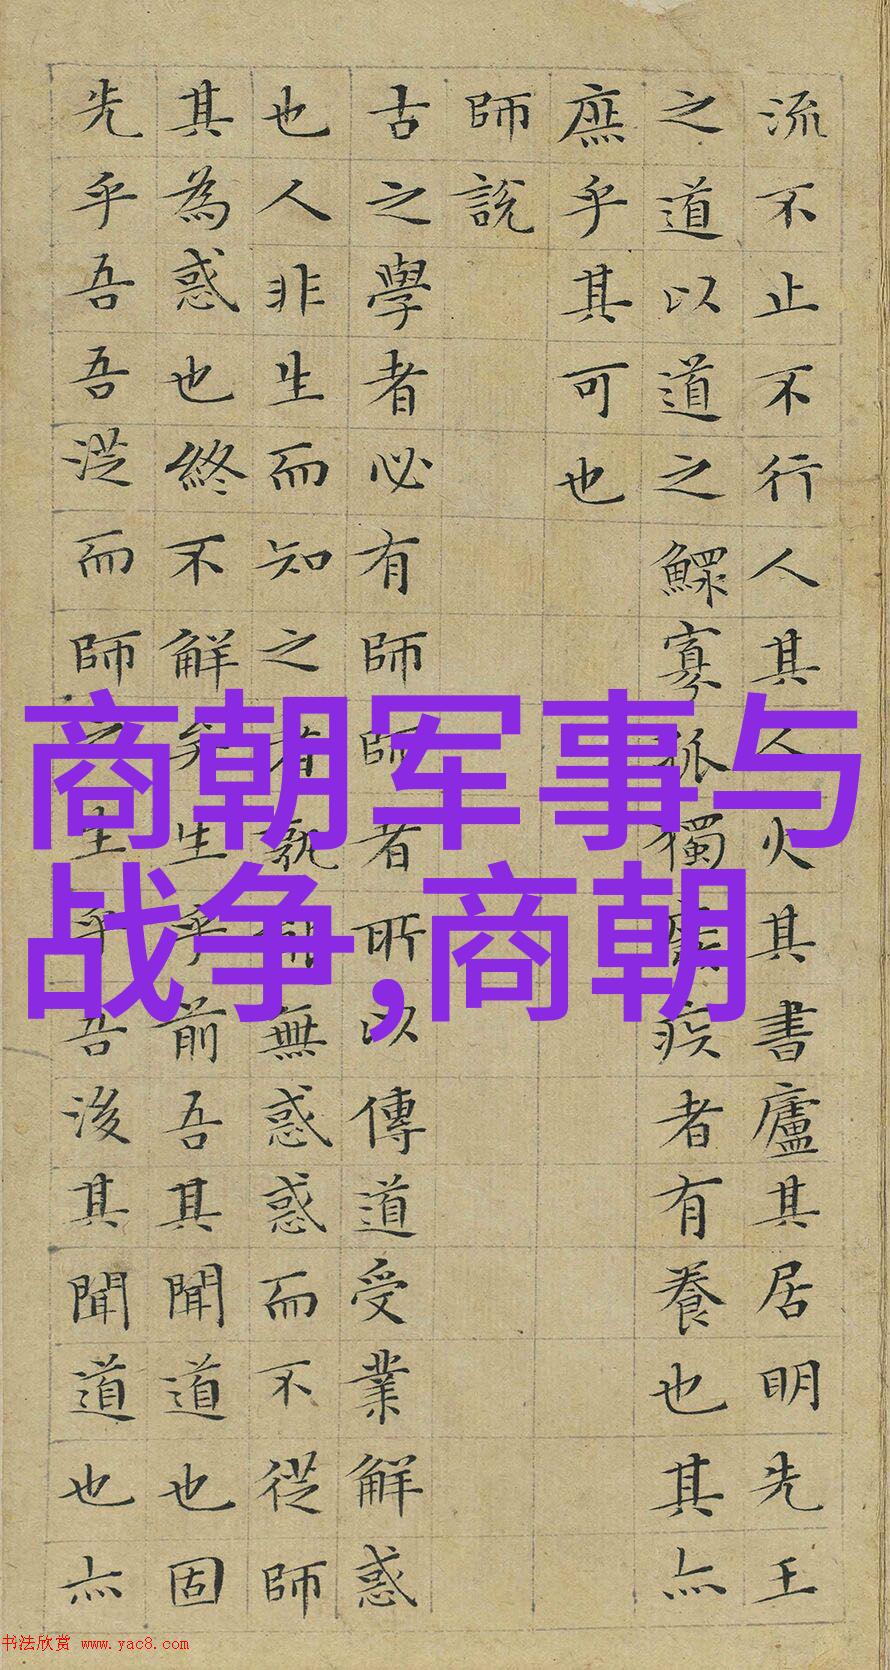 流不止不行人其人火其書廬其居明先王
之道以道之鰥寡孤獨廢疾者有養也其亦
庶乎其可也
師說
古之學者必有師師者所以傳道受業解惑
也人非生而知之者孰能無惑惑而不從師
其為惑也終不解矣生乎前吾其聞道也固
先乎吾吾從而師之生乎吾後其聞道也亦
商朝军事与
战争,商朝
书法欣赏 www.yac8.com